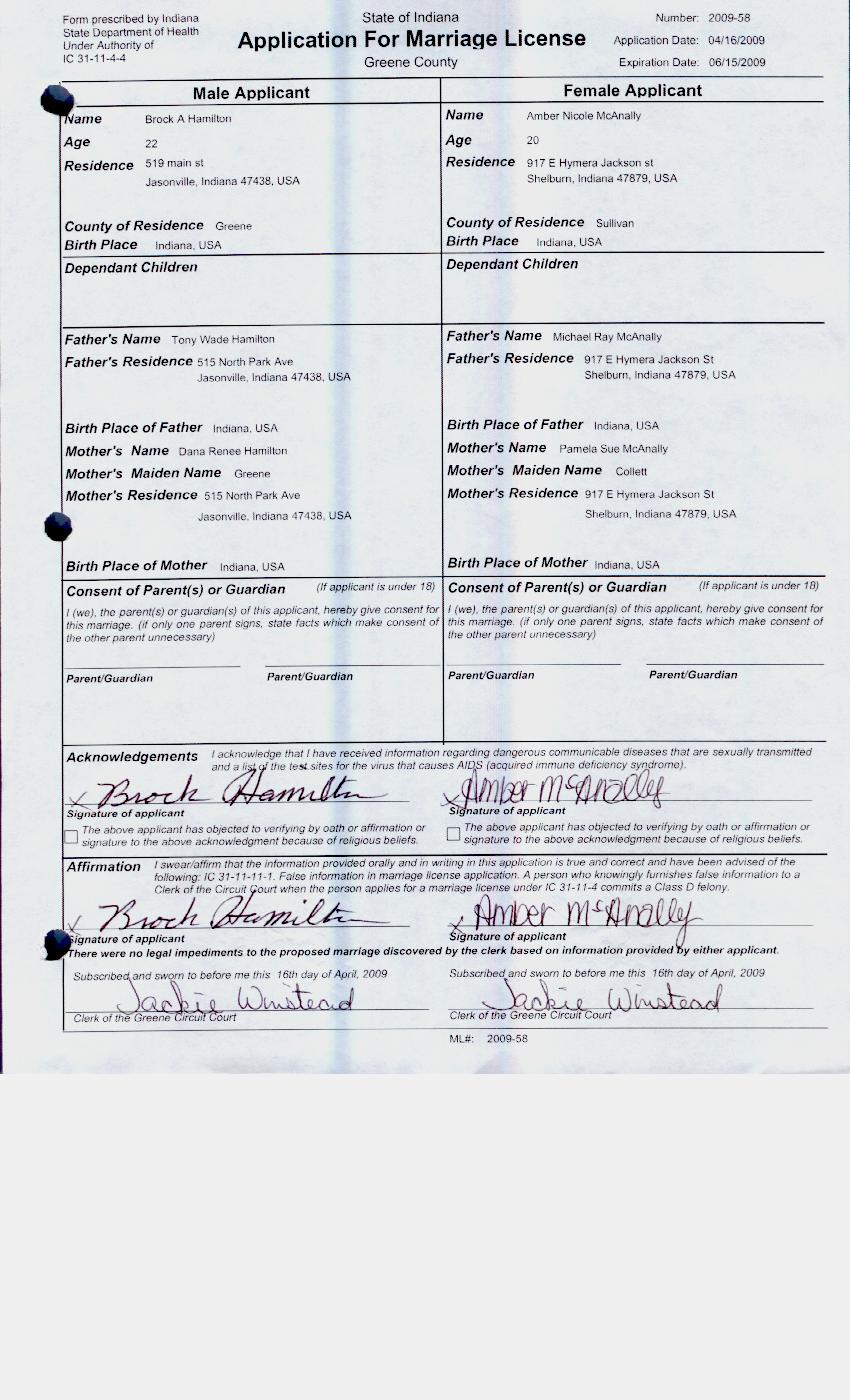 Form prescribed by Indiana
State Department of Health
Under Authority of
IC 31-11-4-4
State of Indiana
Application For Marriage License
Greene County
Number: 2009-58
Application Date: 04/16/2009
Expiration Date: 06/15/2009
Male Applicant
Name Brock A Hamilton
Age 22
Residence 519 main st
Jasonville, Indiana 47438, USA
County of Residence Greene
Birth Place Indiana, USA
Dependant Children
Father's Name Tony Wade Hamilton
Father's Residence 515 North Park Ave
Jasonville, Indiana 47438, USA
Birth Place of Father Indiana, USA
Mother's Name Dana Renee Hamilton
Mother's Maiden Name Greene
Mother's Residence 515 North Park Ave
Jasonville, Indiana 47438, USA
Birth Place of Mother Indiana, USA
Consent of Parent(s) or Guardian (If applicant is under 18)
I (we), the parent(s) or guardian(s) of this applicant, hereby give consent for
this marriage. (if only one parent signs, state facts which make consent of
the other parent unnecessary)
Parent/Guardian Parent/Guardian
Female Applicant
Name Amber Nicole McAnally
Age 20
Residence 917 E Hymera Jackson st
Shelburn, Indiana 47879, USA
County of Residence Sullivan
Birth Place Indiana, USA
Dependant Children
Father's Name Michael Ray McAnally
Father's Residence 917 E Hymera Jackson St
Shelburn, Indiana 47879, USA
Birth Place of Father Indiana, USA
Mother's Name Pamela Sue McAnally
Mother's Maiden Name Collett
Mother's Residence 917 E Hymera Jackson St
Shelburn, Indiana 47879, USA
Birth Place of Mother Indiana, USA
Consent of Parent(s) or Guardian (If applicant is under 18)
I (we), the parent(s) or guardian(s) of this applicant, hereby give consent for
this marriage. (if only one parent signs, state facts which make consent of
the other parent unnecessary)
Parent/Guardian Parent/Guardian
Acknowledgements I acknowledge that I have received information regarding dangerous communicable diseases that are sexually transmitted
and a list of the test sites for the virus that causes AIDS (acquired immune deficiency syndrome).
x Brock Hamilton
Signature of applicant
The above applicant has objected to verifying by oath or affirmation or
signature to the above acknowledgment because of religious beliefs.
x Amber McAnally
Signature of applicant
The above applicant has objected to verifying by oath or affirmation or
signature to the above acknowledgment because of religious beliefs.
Affirmation I swear/affirm that the information provided orally and in writing in this application is true and correct and have been advised of the
following: IC 31-11-11-1. False information in marriage license application. A person who knowingly furnishes false information to a
Clerk of the Circuit Court when the person applies for a marriage license under IC 31-11-4 commits a Class D felony.
x Brock Hamilton x Amber McAnally
Signature of applicant Signature of applicant
There were no legal impediments to the proposed marriage discovered by the clerk based on information provided by either applicant.
Subscribed and sworn to before me this 16th day of April, 2009
Jackie Winstead
Clerk of the Greene Circuit Court
Subscribed and sworn to before me this 16th day of April, 2009
Jackie Winstead
Clerk of the Greene Circuit Court
ML#: 2009-58